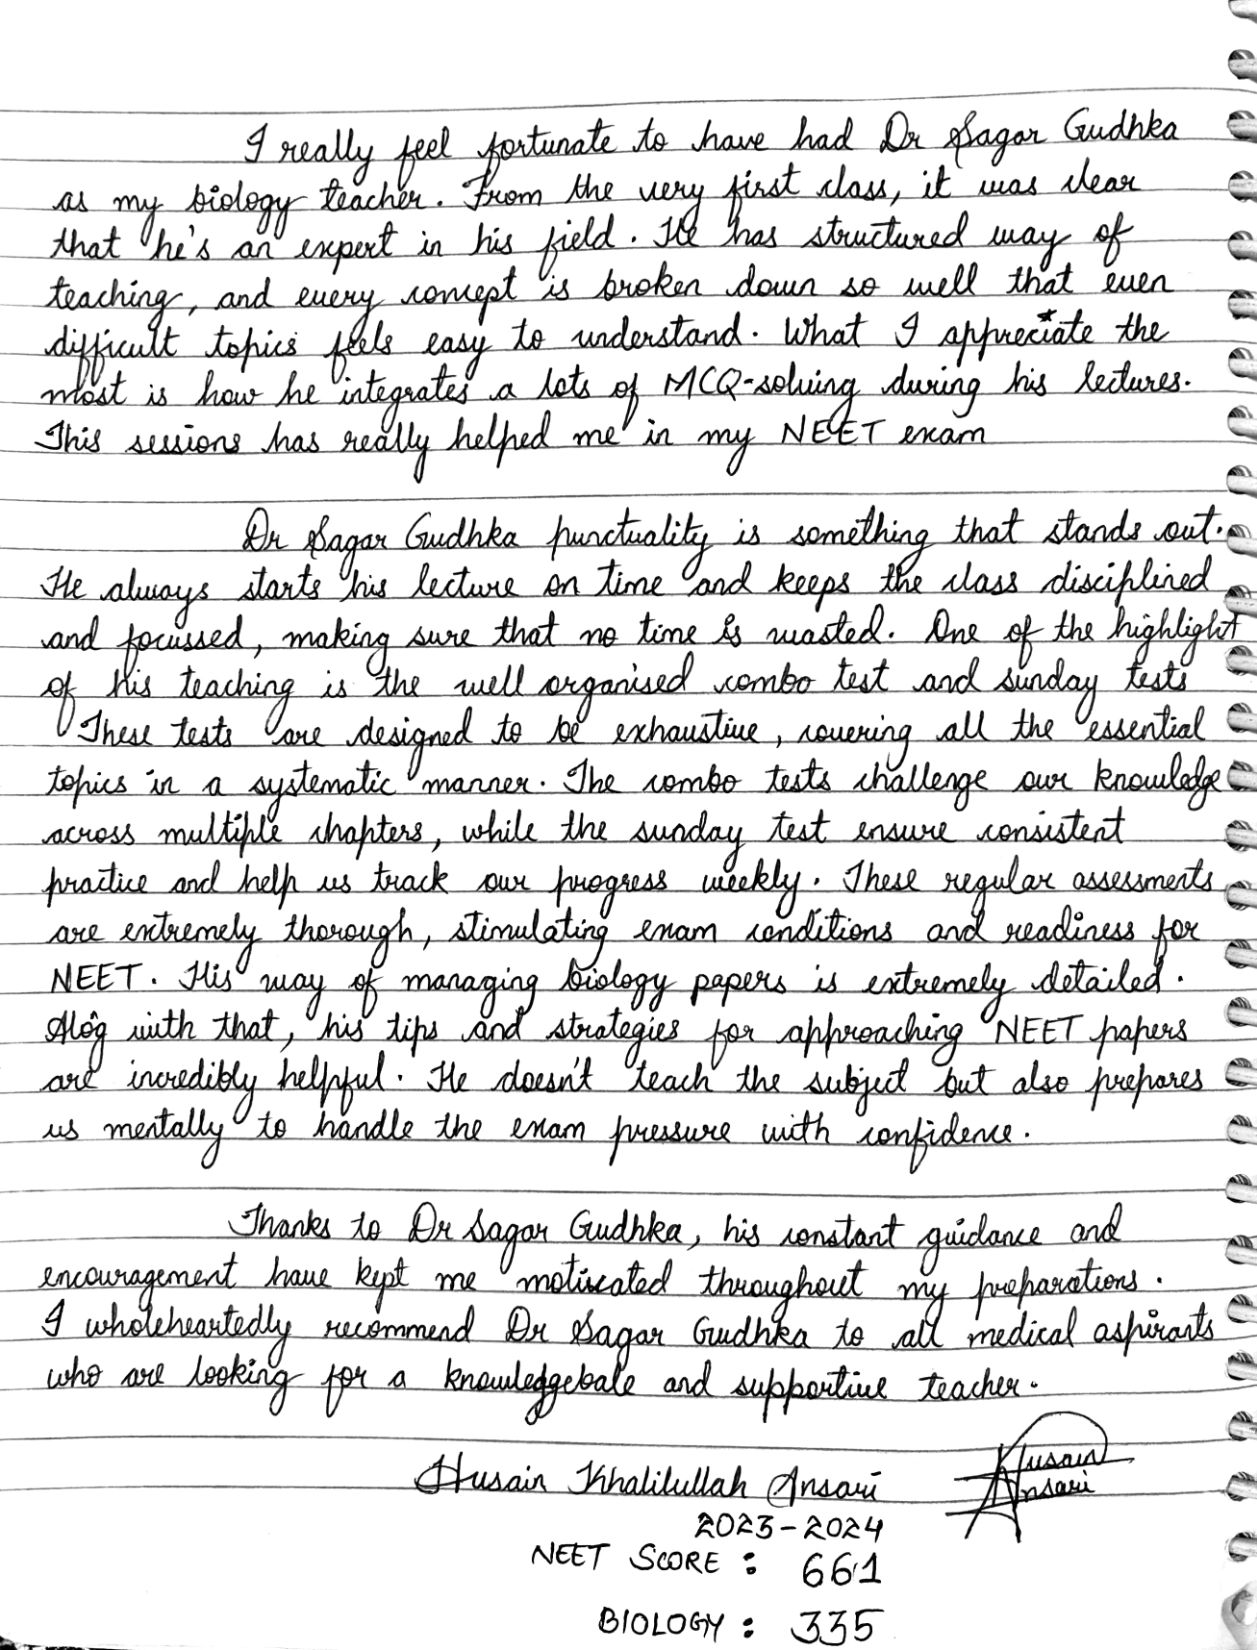 I really feel fortunate to have had Dr Sagar Gudhka
as my biology teacher. From the very first class, it was clear
that he's an expert in his field. He has structured way of
teaching, and every concept is broken down so well that even
difficult topics feels easy to understand. What I appreciate the
most is how he integrates a lots of MCQ-solving during his lectures.
This sessions has really helped me in my NEET exam
Dr Sagar Gudhka punctuality is something that stands out.
He always starts his lecture on time and keeps the class disciplined
and focussed, making sure that no time is wasted. One of the highlight
of his teaching is the well organised combo test and sunday tests
These tests are designed to be exhaustive, covering all the essential
topics in a systematic manner. The combo tests challenge our knowledge
across multiple chapters, while the sunday test ensure consistent
practice and help us track our progress weekly. These regular assessments
are extremely thorough, stimulating exam conditions and readiness for
NEET. His way of managing biology papers is extremely detailed.
Alog with that, his tips and strategies for approaching NEET papers
are incredibly helpful. He doesn't teach the subject but also prepares
us mentally to handle the exam pressure with confidence.
Thanks to Dr Sagar Gudhka, his constant guidance and
encouragement have kept me motivated throughout my preparations.
I wholeheartedly recommend Dr Sagar Gudhka to all medical aspirants
who are looking for a knowledgebale and supportive teacher.
Husain Khalilullah Ansari
Husain
Ansari
2023-2024
NEET SCORE : 661
BIOLOGY : 335